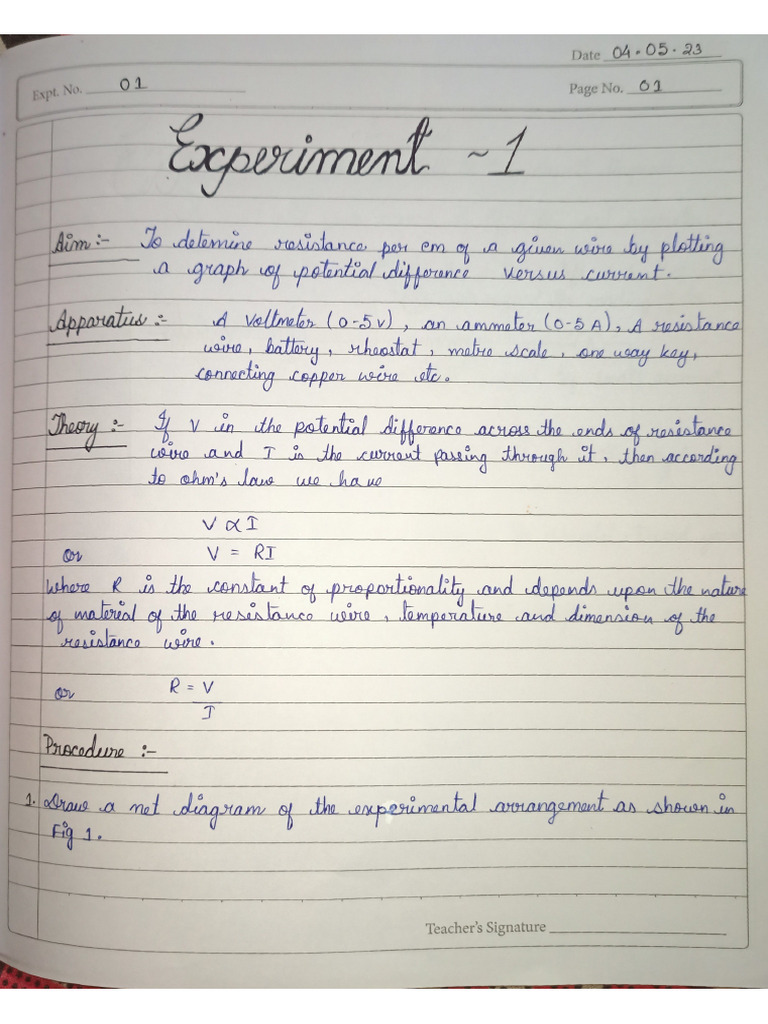 Date 04.05.23
Expt. No. 01
Page No. 01
Experiment ~ 1
Aim :- To detemine resistance per cm of a given wire by plotting
a graph of potential difference versus current.
Apparatus :- A voltmeter (0-5v), an ammeter (0-5A), A resistance
wire, battery, rheostat, metre scale, one way key,
connecting copper wire etc.
Theory :- If V in the potential difference across the ends of resistance
wire and I is the current passing through it, then according
to ohm's law we have
V ∝ I
or V = RI
where R is the constant of proportionality and depends upon the nature
of material of the resistance wire, temperature and dimension of the
resistance wire.
or R = V
I
Procedure :-
1. Draw a net diagram of the experimental arrangement as shown in
Fig 1.
Teacher's Signature